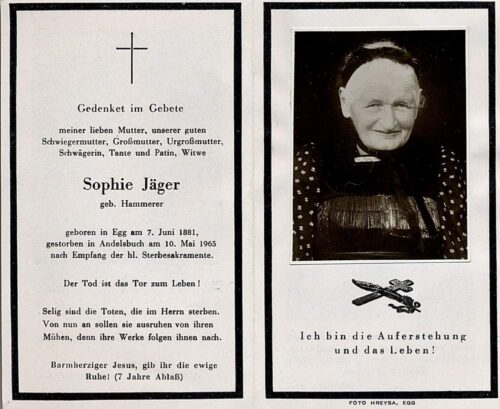 Gedenket im Gebete
meiner lieben Mutter, unserer guten
Schwiegermutter, Großmutter, Urgroßmutter,
Schwägerin, Tante und Patin, Witwe
Sophie Jäger
geb. Hammerer
geboren in Egg am 7. Juni 1881,
gestorben in Andelsbuch am 10. Mai 1965
nach Empfang der hl. Sterbesakramente.
Der Tod ist das Tor zum Leben!
Selig sind die Toten, die im Herrn sterben.
Von nun an sollen sie ausruhen von ihren
Mühen, denn ihre Werke folgen ihnen nach.
Barmherziger Jesus, gib ihr die ewige
Ruhe! (7 Jahre Ablaß)
Ich bin die Auferstehung
und das Leben!
FOTO HREYSA, EGG